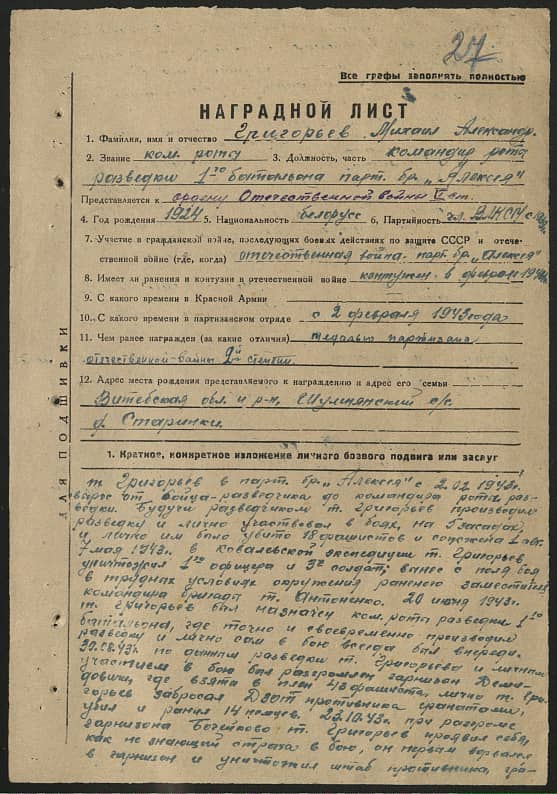 27
Все графы заполнять полностью
НАГРАДНОЙ ЛИСТ
1. Фамилия, имя и отчество Григорьев Михаил Александр.
2. Звание ком. рота 3. Должность, часть командир рота
разведки 1го батальона парт. бр. „Алексея"
Представляется к ордену Отечественной войны II ст.
4. Год рождения 1924 5. Национальность белорусс 6. Партийность чл. ВЛКСМ с
7. Участие в гражданской войне, последующих боевых действиях по защите СССР и отече-
ственной войне (где, когда) отечественная война. парт. бр. „Алексея"
8. Имеет ли ранения и контузии в отечественной войне контужен в феврале
9. С какого времени в Красной Армии
10. С какого времени в партизанском отряде с 2 февраля 1943 года
11. Чем ранее награжден (за какие отличия) медалью партизана
отечественной войны 2й степени
12. Адрес места рождения представляемого к награждению и адрес его семьи
Витебская обл. и р-н, Шумнянский с/с.
д. Старинки.
ДЛЯ ПОДШИВКИ
1. Краткое, конкретное изложение личного боевого подвига или заслуг
т. Григорьев в парт. бр. „Алексея" с 2.02.1943г.
вырос от бойца-разведчика до командира роты раз-
ведки. Будучи разведчиком т. Григорьев производил
разведку и лично участвовал в боях, на засадах,
и лично им было убито 18 фашистов и сожжена 1 авт.
7 мая 1943г. в Ковалевской экспедиции т. Григорьев
уничтожил 1го офицера и 3х солдат, вынес с поля боя
в трудных условиях окружения раненого заместителя
командира бригады т. Антоненко. 20 июня 1943г.
т. Григорьев был назначен ком. рота разведки 1го
батальона, где точно и своевременно производил
разведку и лично сам в бою всегда был впереди.
30.08.43г. по данным разведки т. Григорьева и личном
участием в бою был разгромлен гарнизон Деми-
довичи, где взято в плен 43 фашиста, лично т. Гри-
горьев забросал Дзот противника гранатами,
убил и ранил 14 немцев. 23.10.43г. при разгроме
гарнизона Бочейково т. Григорьев проявил себя,
как не знающий страха в бою, он первым ворвался
в гарнизон и уничтожил штаб противника, гра-